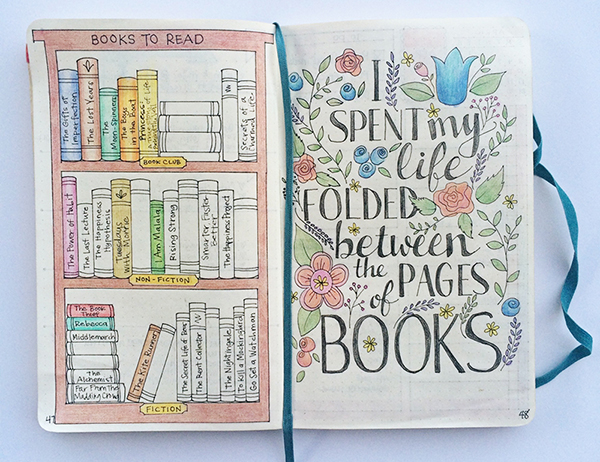 BOOKS TO READ
The Gifts of
Imperfection
The Lost Years
The
Moon-Spinners
The Boys
in the Boat
Princess:
A True Story of Life
Secrets of a
Charmed Life
BOOK CLUB
The Power of Habit
The Last Lecture
The Happiness
Hypothesis
Tuesdays
with Morrie
I Am Malala
Rising Strong
Smarter Faster
Better
The Happiness Project
NON-FICTION
The Book
Thief
Rebecca
Middlemarch
The
Alchemist
Far From The
Madding Crowd
The Kite Runner
The Secret Life of Bees
The Rent Collector
The Nightingale
To Kill a Mockingbird
Go Set a Watchman
FICTION
47
I
SPENT my
life
FOLDED
between
the PAGES
of
BOOKS
48